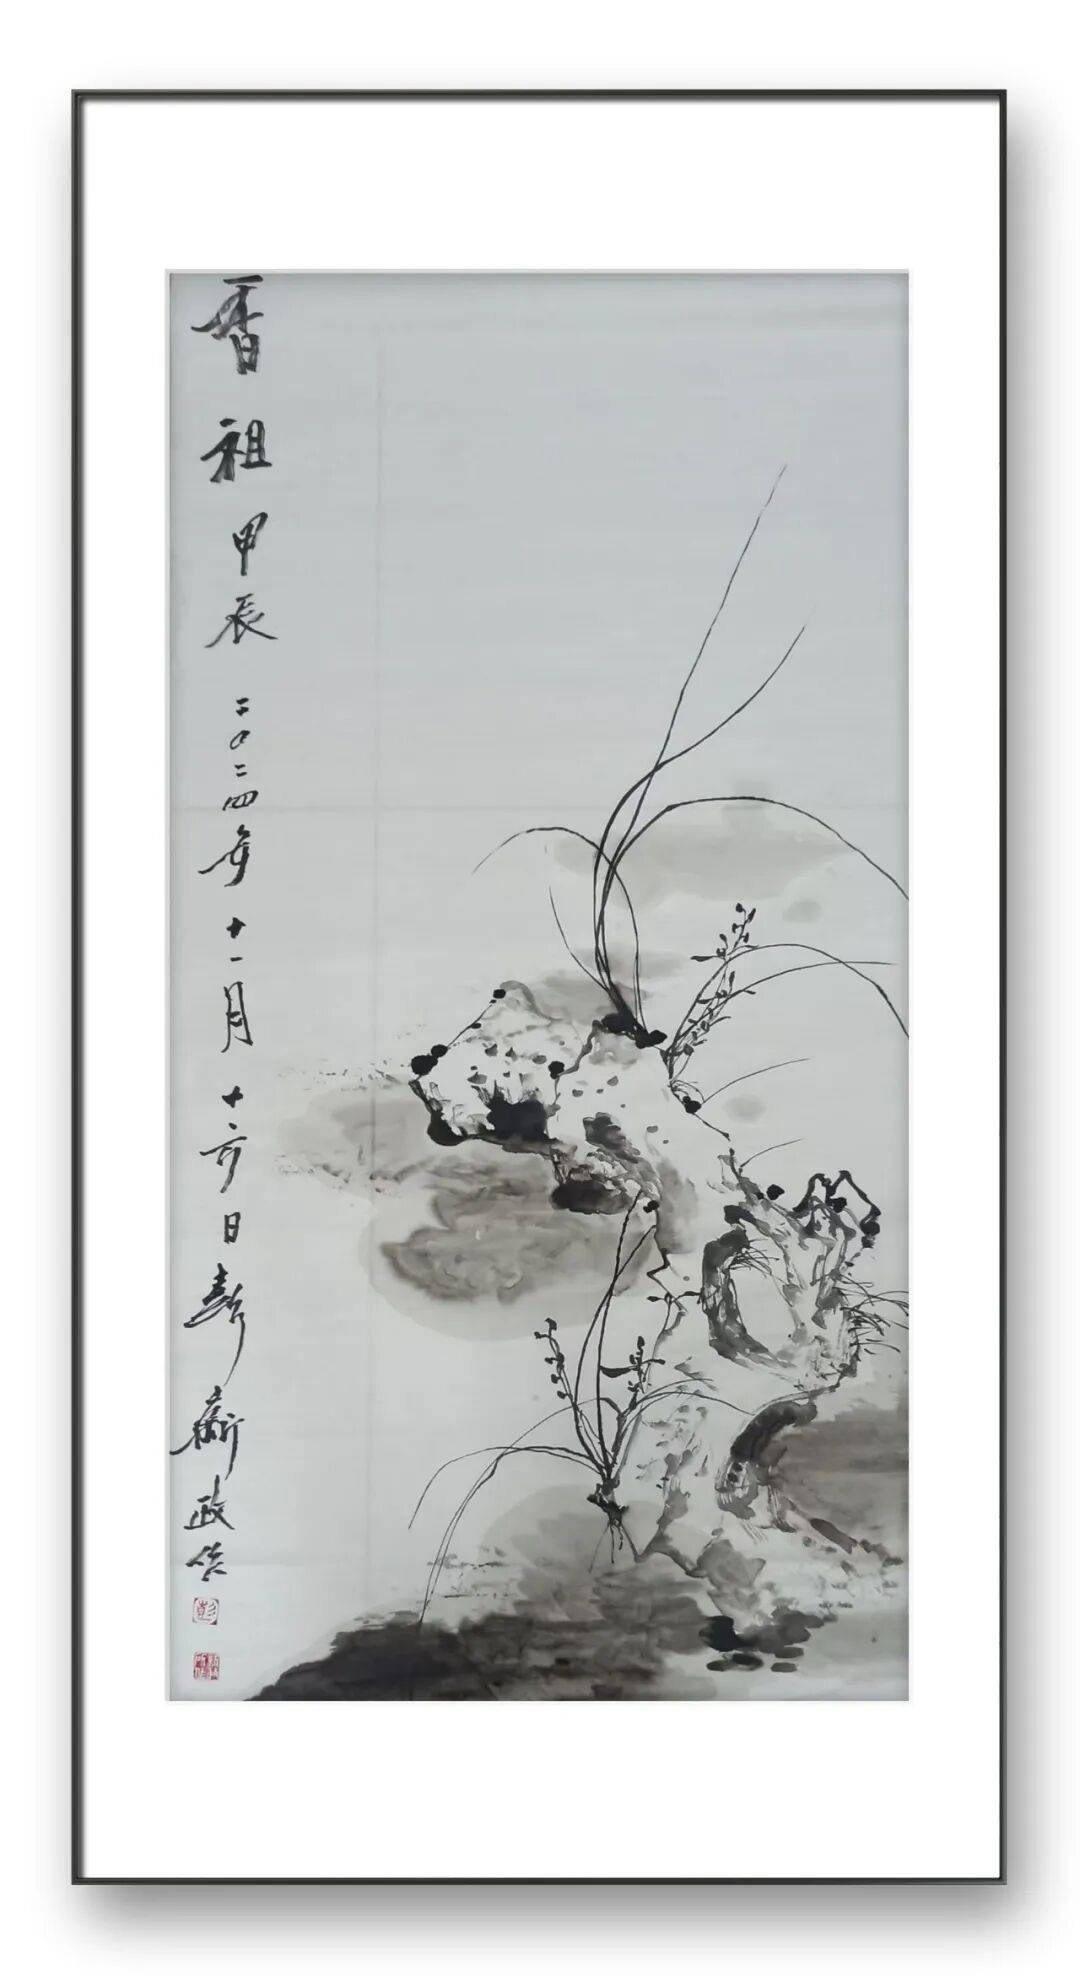 香祖 甲辰 二〇二四年十一月十六日 彭新政作
彭